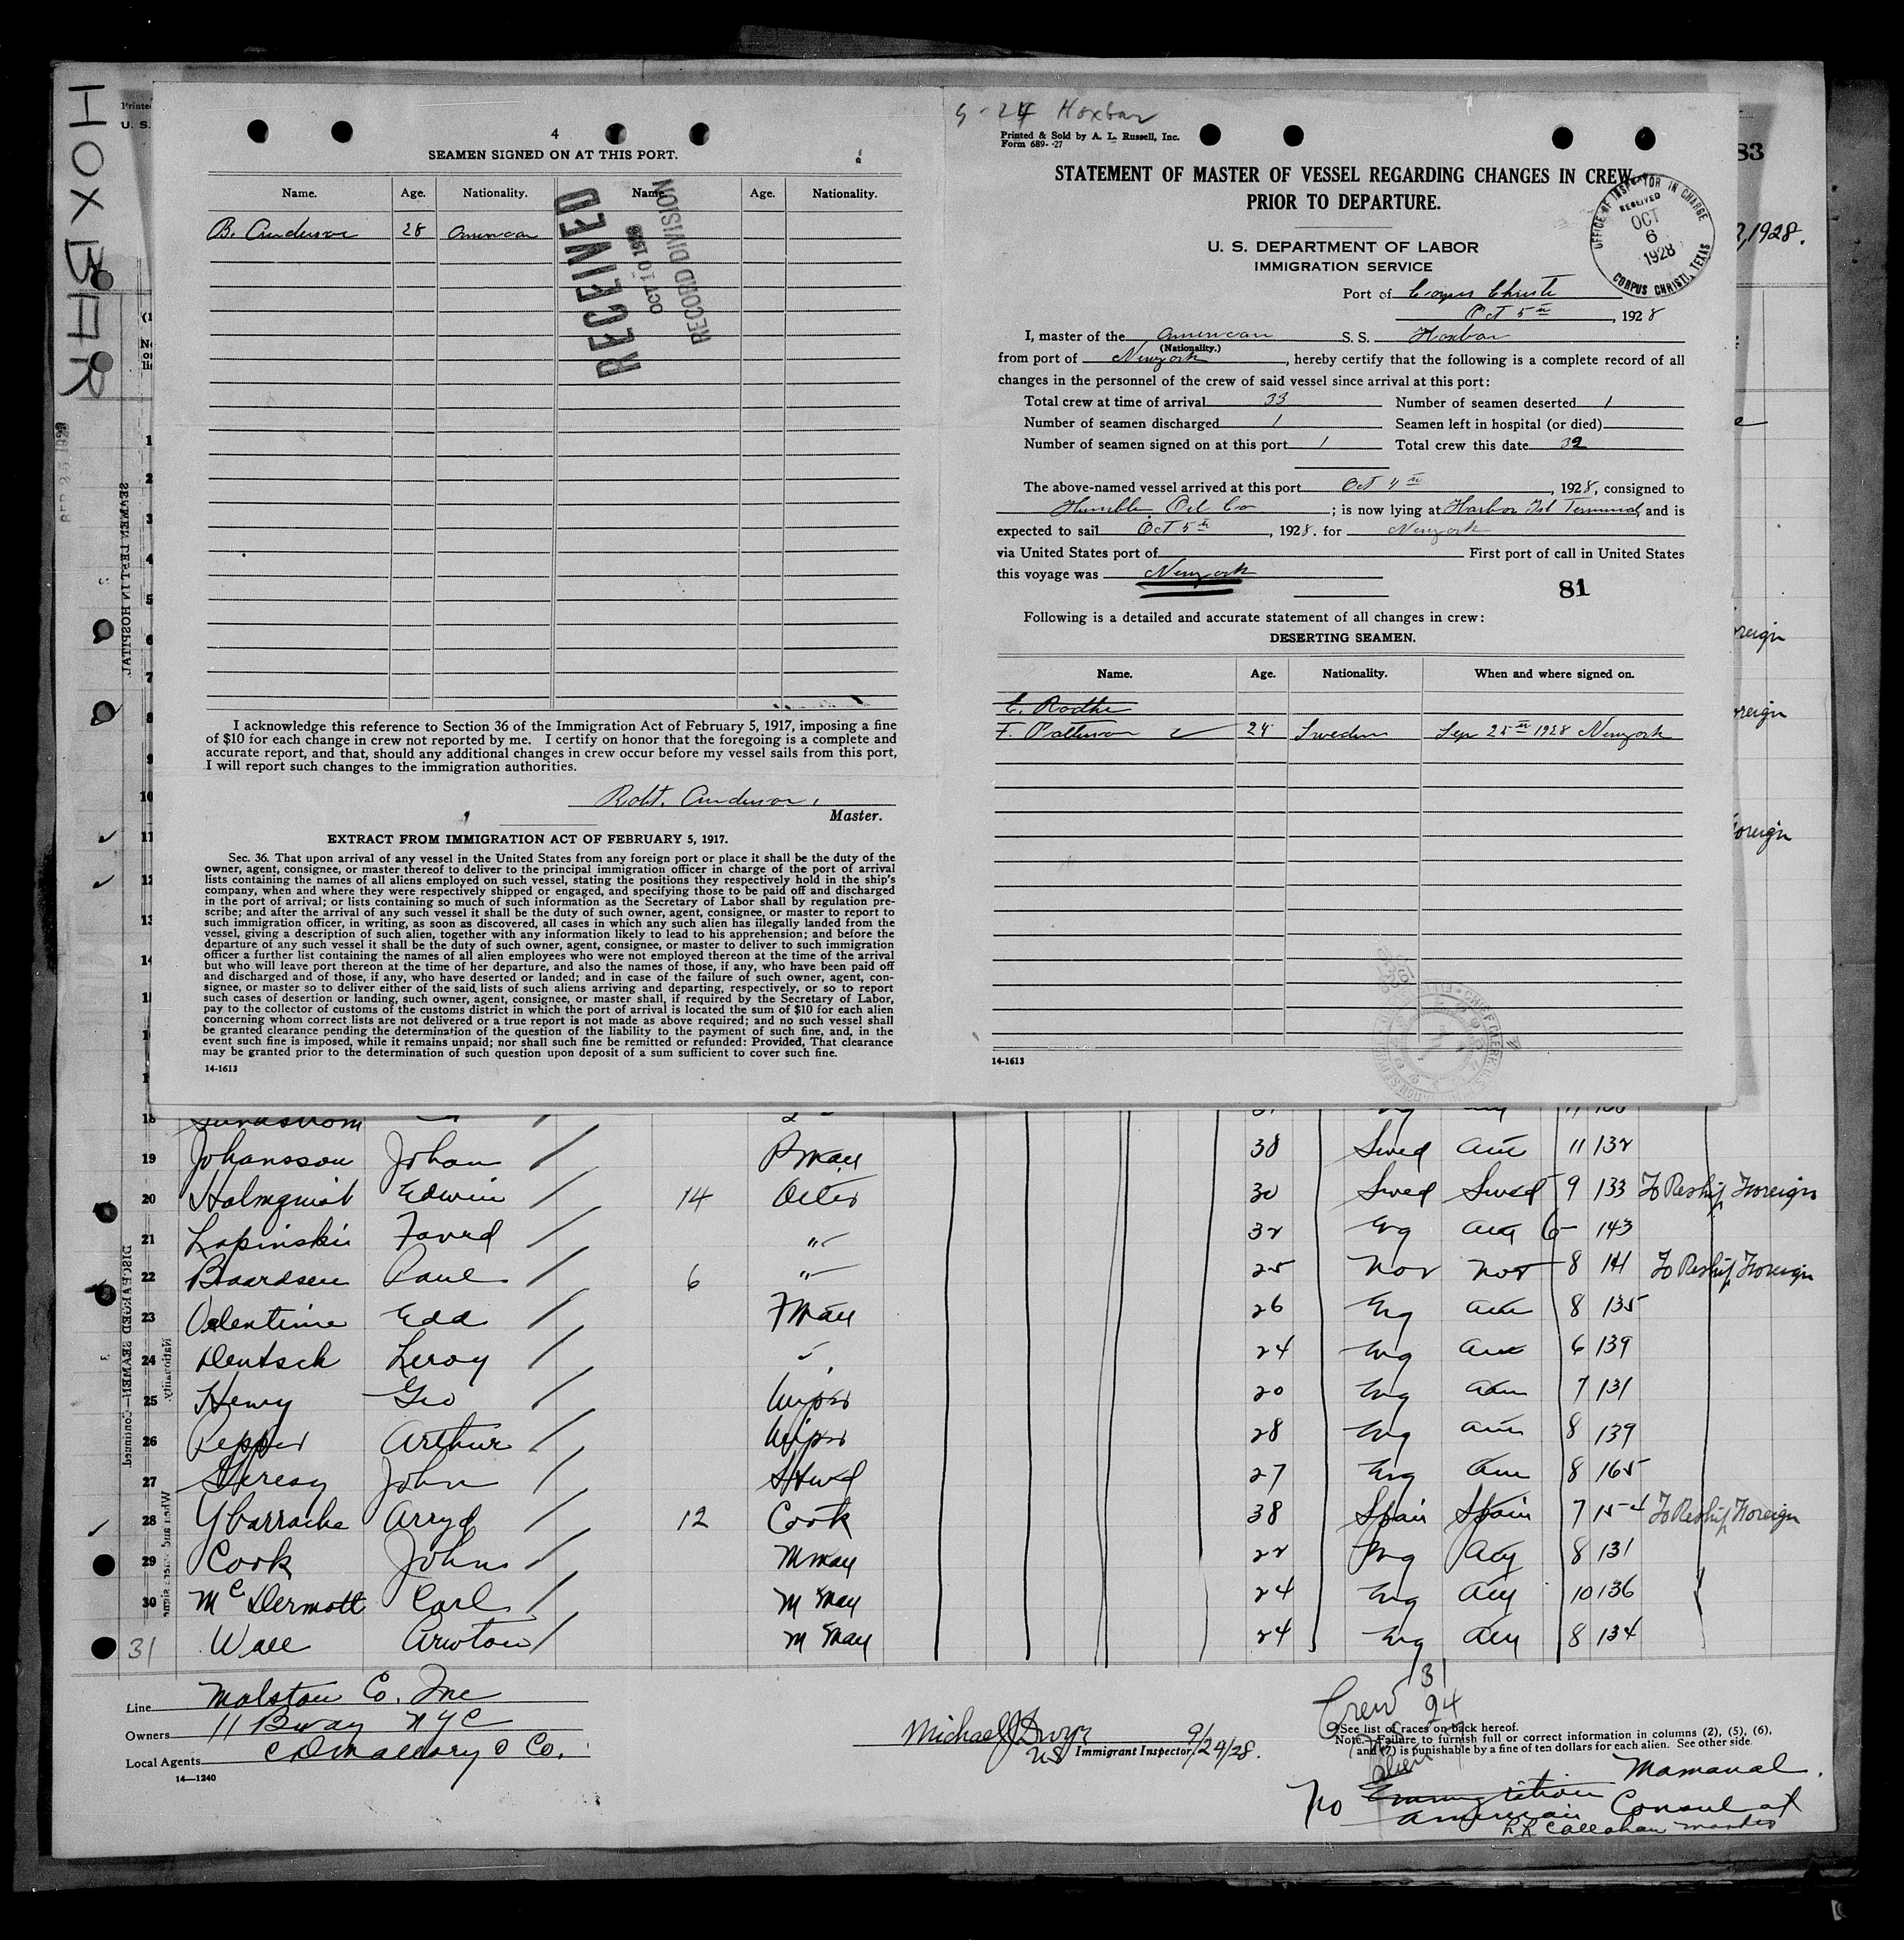 HOXBAR
Printed
U. S.
4
SEAMEN SIGNED ON AT THIS PORT.
Name. Age. Nationality. Name. Age. Nationality.
B. Anderson 28 American
RECEIVED
OCT 10 1928
RECORD DIVISION
I acknowledge this reference to Section 36 of the Immigration Act of February 5, 1917, imposing a fine
of $10 for each change in crew not reported by me. I certify on honor that the foregoing is a complete and
accurate report, and that, should any additional changes in crew occur before my vessel sails from this port,
I will report such changes to the immigration authorities.
Robt. Anderson,
Master.
EXTRACT FROM IMMIGRATION ACT OF FEBRUARY 5, 1917.
Sec. 36. That upon arrival of any vessel in the United States from any foreign port or place it shall be the duty of the
owner, agent, consignee, or master thereof to deliver to the principal immigration officer in charge of the port of arrival
lists containing the names of all aliens employed on such vessel, stating the positions they respectively hold in the ship's
company, when and where they were respectively shipped or engaged, and specifying those to be paid off and discharged
in the port of arrival; or lists containing so much of such information as the Secretary of Labor shall by regulation pre-
scribe; and after the arrival of any such vessel it shall be the duty of such owner, agent, consignee, or master to report to
such immigration officer, in writing, as soon as discovered, all cases in which any such alien has illegally landed from the
vessel, giving a description of such alien, together with any information likely to lead to his apprehension; and before the
departure of any such vessel it shall be the duty of such owner, agent, consignee, or master to deliver to such immigration
officer a further list containing the names of all alien employees who were not employed thereon at the time of the arrival
but who will leave port thereon at the time of her departure, and also the names of those, if any, who have been paid off
and discharged and of those, if any, who have deserted or landed; and in case of the failure of such owner, agent, con-
signee, or master so to deliver either of the said lists of such aliens arriving and departing, respectively, or so to report
such cases of desertion or landing, such owner, agent, consignee, or master shall, if required by the Secretary of Labor,
pay to the collector of customs of the customs district in which the port of arrival is located the sum of $10 for each alien
concerning whom correct lists are not delivered or a true report is not made as above required; and no such vessel shall
be granted clearance pending the determination of the question of the liability to the payment of such fine, and, in the
event such fine is imposed, while it remains unpaid; nor shall such fine be remitted or refunded: Provided, That clearance
may be granted prior to the determination of such question upon deposit of a sum sufficient to cover such fine.
14-1613
9-24 Hoxbar
Printed & Sold by A. L. Russell, Inc.
Form 689--27
STATEMENT OF MASTER OF VESSEL REGARDING CHANGES IN CREW
PRIOR TO DEPARTURE.
U. S. DEPARTMENT OF LABOR
IMMIGRATION SERVICE
OFFICE OF INSPECTOR IN CHARGE
RECEIVED
OCT
6
1928
CORPUS CHRISTI, TEXAS
Port of Corpus Christi
Oct 5th, 1928
I, master of the American S. S. Hoxbar
(Nationality.)
from port of Newyork, hereby certify that the following is a complete record of all
changes in the personnel of the crew of said vessel since arrival at this port:
Total crew at time of arrival 33 Number of seamen deserted 1
Number of seamen discharged 1 Seamen left in hospital (or died)
Number of seamen signed on at this port 1 Total crew this date 32
The above-named vessel arrived at this port Oct 4th, 1928, consigned to
Humble Oil Co; is now lying at Harbor Isl Terminal, and is
expected to sail Oct 5th, 1928. for Newyork
via United States port of First port of call in United States
this voyage was Newyork
81
Following is a detailed and accurate statement of all changes in crew:
DESERTING SEAMEN.
Name. Age. Nationality. When and where signed on.
E. Rodhe
F. Patterson 24 Sweden Sep 25th 1928 Newyork
14-1613
83
, 1928.
19 Johansson Johan Pman 38 Swed Am 11 132
20 Holmquist Edwin 14 Oiler 30 Swed Swed 9 133 To Reship Foreign
21 Lapinski 32 Eng 143
22 Baardsen Paul 6 " 25 Nor Nor 8 141 To Reship Foreign
23 Valentine Edd Fman 26 Eng Am 8 135
24 Deutsch Leroy 24 Eng Am 6 139
25 Henry Geo Wiper 20 Eng Am 7 131
26 Pepper Arthur Wiper 28 Eng Am 8 139
27 John Stwd 27 Eng Am 8 165
28 Ybarrache 12 Cook 38 Spain Spain 7 154 To Reship Foreign
29 Cook John Mman 22 Eng 8 131
30 McDermott Carl M man 24 Eng 10 136
31 M man 24 Eng 8 134
Line Malston Co. Inc
Owners 11 Bway NYC
Local Agents C D Mallory & Co.
14—1240
Michael J Dwyer
US Immigrant Inspector 9/24/28.
Crew 31
24
Alien 7
See list of races on back hereof.
Note.—Failure to furnish full or correct information in columns (2), (5), (6),
and (7) is punishable by a fine of ten dollars for each alien. See other side.
No Immigration Mamanal.
American Consul at
Callahan master